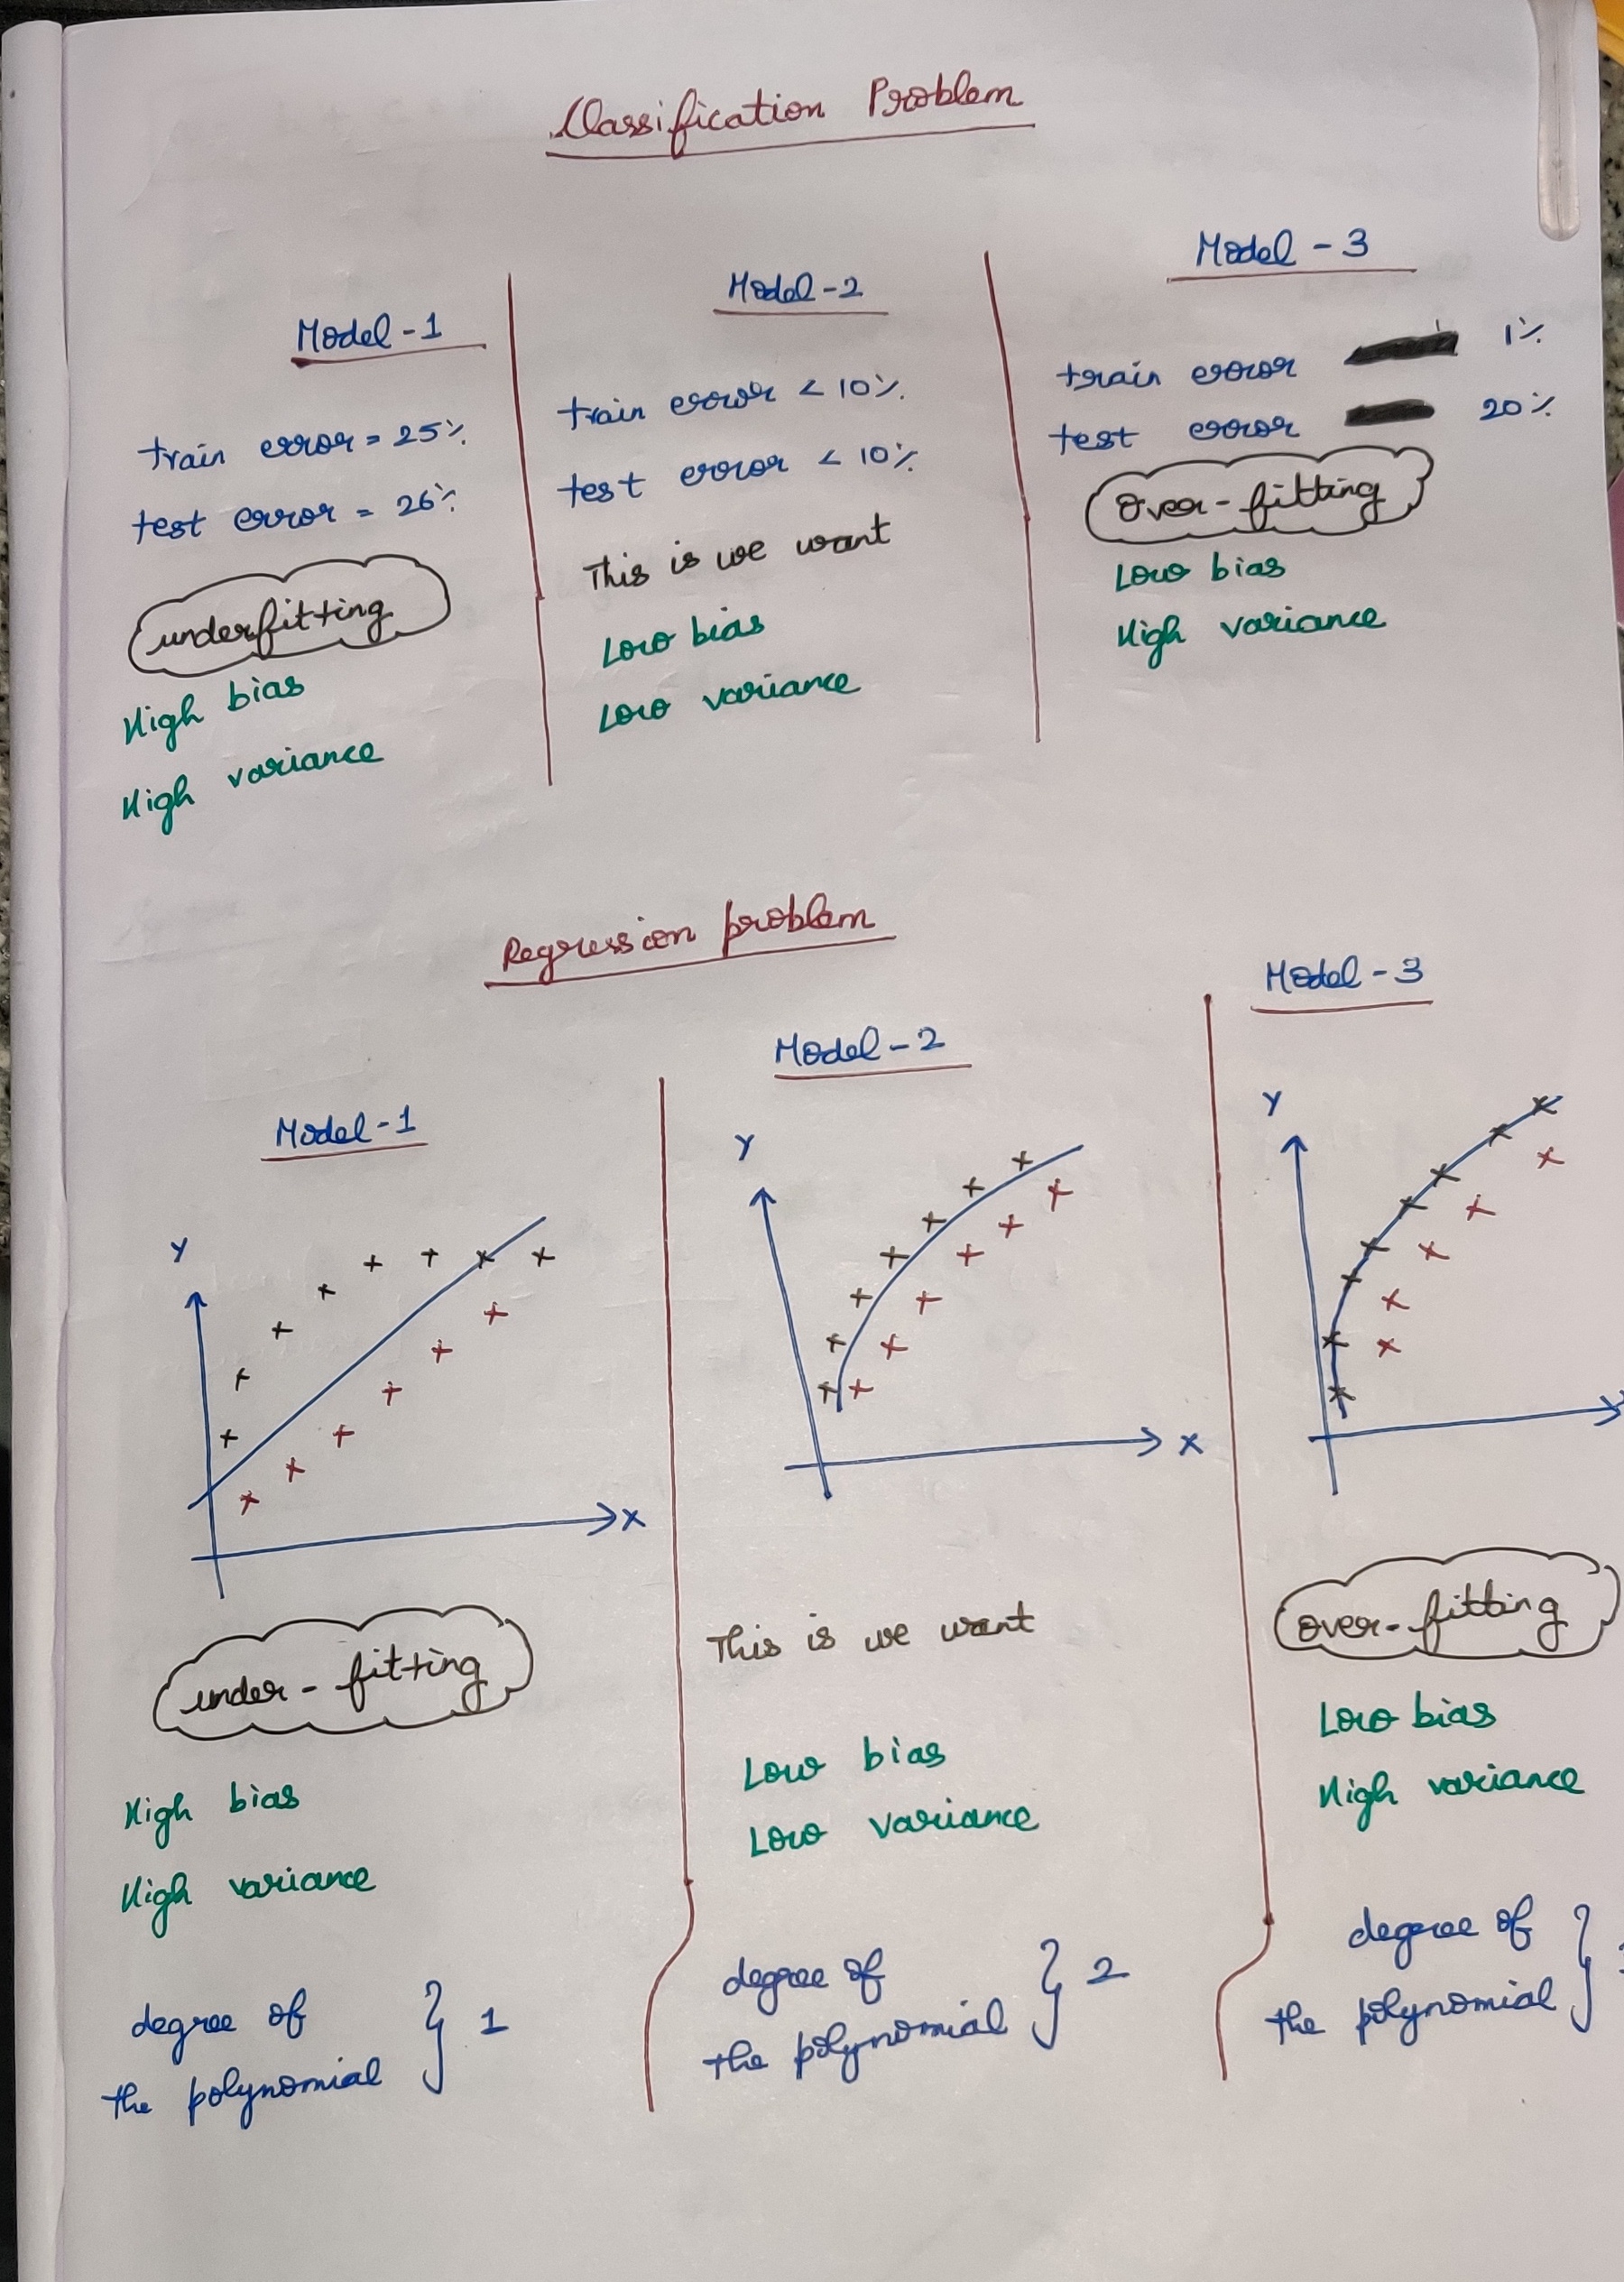 Classification Problem
Model - 1
train error = 25%
test error = 26%
underfitting
High bias
High variance
Model - 2
train error < 10%
test error < 10%
This is we want
Low bias
Low variance
Model - 3
train error 1%
test error 20%
Over - fitting
Low bias
High variance
Regression problem
Model - 1
Y
X
under - fitting
High bias
High variance
degree of
the polynomial } 1
Model - 2
Y
X
This is we want
Low bias
Low variance
degree of
the polynomial } 2
Model - 3
Y
over - fitting
Low bias
High variance
degree of
the polynomial }